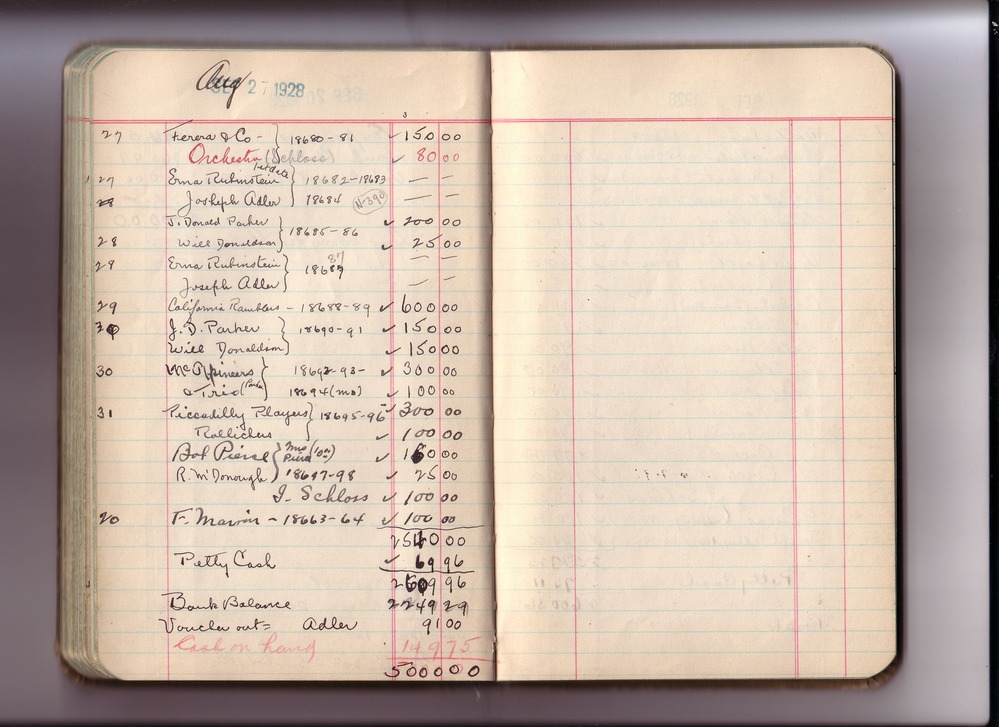 Aug 27 1928
27 Ferera & Co - } 18680-81 ✓ 150 00
Orchestra (Schloss) ✓ 80 00
27 Erna Rubinstein } 18682-18683 — —
28 Josheph Adler } 18684 N-390 — —
J. Donald Parker } 18685-86 ✓ 200 00
28 Will Donaldson } ✓ 25 00
29 Erna Rubinstein } 18687 — —
Joseph Adler } — —
29 California Ramblers - 18688-89 ✓ 600 00
30 J.D. Parker } 18690-91 ✓ 150 00
Will Donaldson } ✓ 150 00
30 } 18692-93- ✓ 300 00
Trio } 18694 (mo) ✓ 100 00
31 Piccadilly Players } 18695-96 ✓ 300 00
Rollickers ✓ 100 00
Bob Pierse } ✓ 00
R. McDonough } 18697-98 ✓ 25 00
I. Schloss ✓ 100 00
20 F. Marvin - 18663-64 ✓ 100 00
2540 00
Petty Cash ✓ 69 96
2609 96
Bank Balance 2249 29
Voucher out= Adler 91 00
Cash on hand 149 75
5000 00